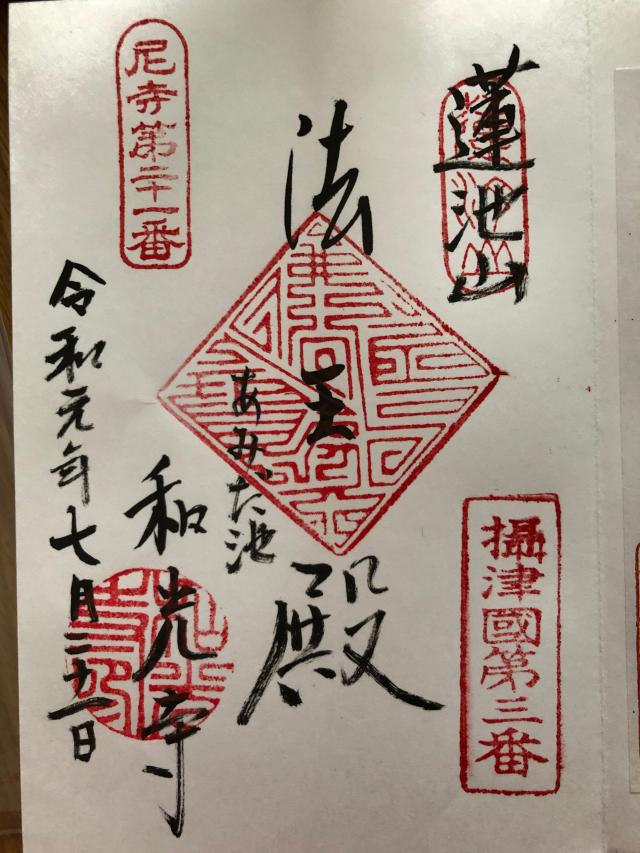 蓮池山
攝津國第三番
法王殿
あみだ池
和光寺
尼寺第二十一番
令和元年七月二十一日